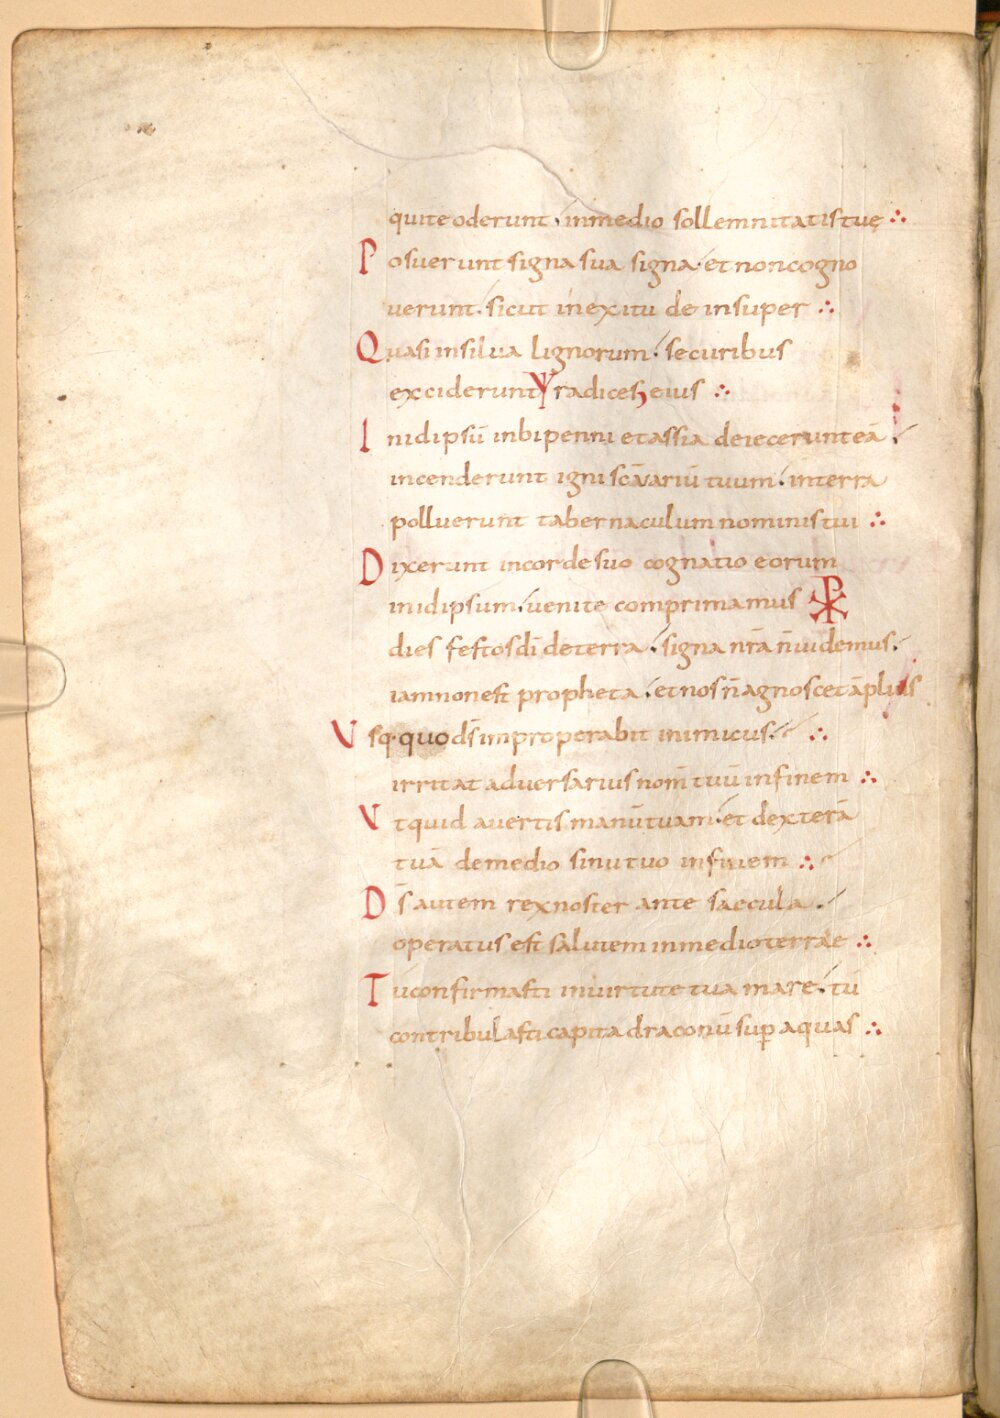 qui te oderunt in medio sollemnitatis tuę ∴
Posuerunt signa sua signa et non cogno
uerunt sicut in exitu de insuper ∴
Quasi in silua lignorum securibus
exciderunt radices eius ∴
In id ipsū in bipenni et assia deiecerunt eā
incenderunt igni sc̄varīu tuum in terra
polluerunt tabernaculum nominis tui ∴
Dixerunt in corde suo cognatio eorum
in id ipsum uenite comprimamus ⳩
dies festos dī de terra signa nr̄a n̄ uidemus
iam non est propheta et nos n̄ agnoscet āplius
Vsq· quo ds̄ improperabit inimicus ∴
irritat aduersarius nom̄ tuū in finem ∴
Vt quid auertis manū tuam et dexterā
tuā de medio sinu tuo in finem ∴
Ds̄ autem rex noster ante saecula
operatus est salutem in medio terrae ∴
Tu confirmasti in uirtute tua mare tū
contribulasti capita draconū sup̄ aquas ∴